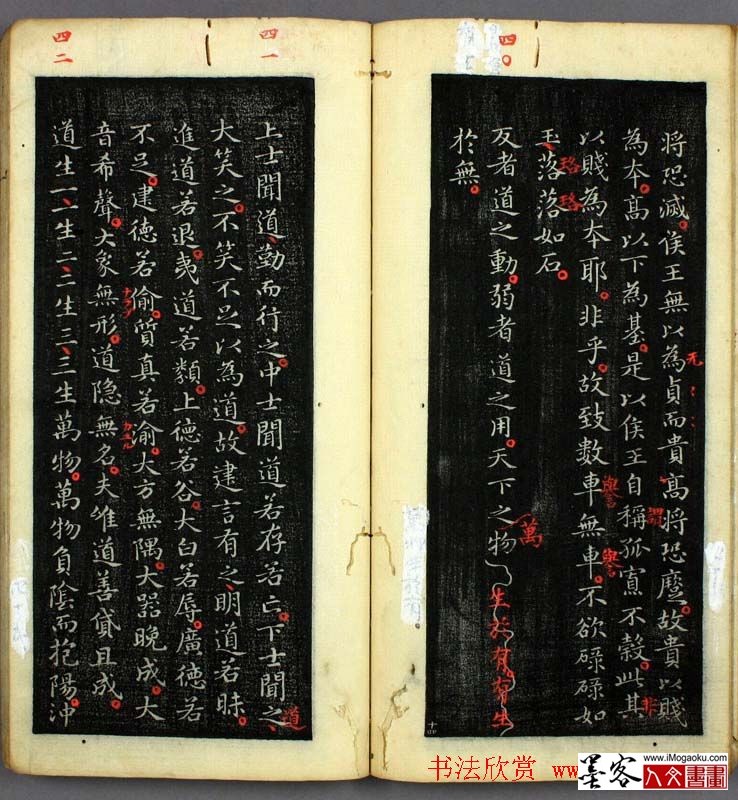 四〇
將恐滅。侯王無以為貞而貴高將恐蹷。故貴以賤
為本。高以下為基。是以侯王自稱孤寡不穀。此其
以賤為本耶。非乎。故致數車無車。不欲碌碌如
玉落落如石。
反者道之動。弱者道之用。天下之物
於無。
无
謂
非
譽
譽
珞
珞
萬
生於有。有生
四一
四二
上士聞道勤而行之。中士聞道若存若亡。下士聞之
大笑之。不笑不足以為道。故建言有之。明道若昧。
進道若退。夷道若類。上德若谷。大白若辱。廣德若
不足。建德若偷。質真若渝。大方無隅。大器晚成。大
音希聲。大象無形。道隱無名。夫唯道善貸且成。
道生一。一生二。二生三。三生萬物。萬物負陰而抱陽。沖
道
书法欣赏 www
墨客
人文書畫
www.iMogaoku.com